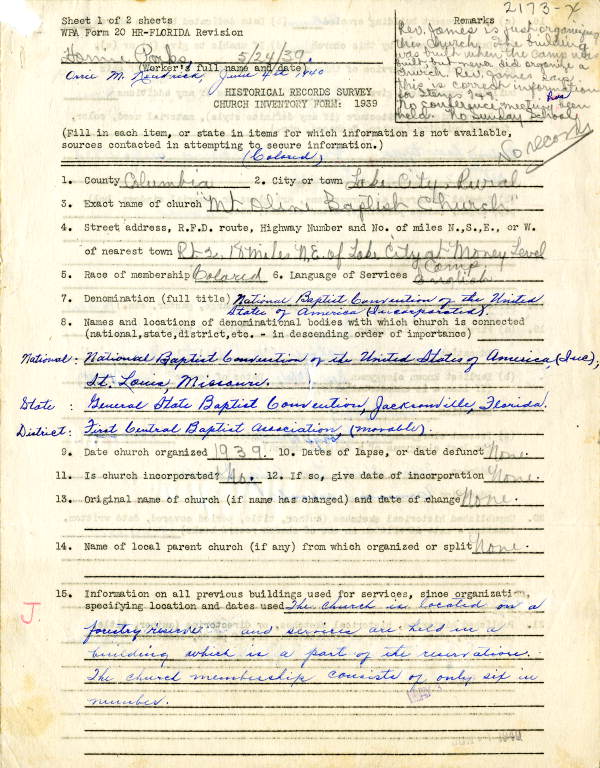 2173-X
Sheet 1 of 2 sheets
WPA Form 20 HR-FLORIDA Revision
Remarks
Rev. James is just organizing
this Church. The building
was built when the Camp was
built but never did organize a
Church. Rev. James says
this is correct information
for Story 1949.
No conference meeting been
held. No Sunday School
No records
5/24/39.
(Worker's full name and date)
Orrie M. Kendrick, June 4th 1940
HISTORICAL RECORDS SURVEY
CHURCH INVENTORY FORM: 1939
(Fill in each item, or state in items for which information is not available,
sources contacted in attempting to secure information.)
(Colored)
1. County Columbia 2. City or town Lake City, Rural
3. Exact name of church "Mt. Olini Baptish Church"
4. Street address, R.F.D. route, Highway Number and No. of miles N.,S.,E., or W.
of nearest town Rt 2, miles N.E. of Lake City at Money Level
Camp
5. Race of membership Colored 6. Language of Services English
7. Denomination (full title) National Baptist Convention of the United
States of America (Incorporated).
8. Names and locations of denominational bodies with which church is connected
(national,state,district,etc. - in descending order of importance)
National: National Baptist Convention of the United States of America, (Inc);
St. Louis, Missouri.
State : General State Baptist Convention, Jacksonville, Florida.
District: First Central Baptist Association, (movable).
9. Date church organized 1939. 10. Dates of lapse, or date defunct None.
11. Is church incorporated? No. 12. If so, give date of incorporation None.
13. Original name of church (if name has changed) and date of change None.
14. Name of local parent church (if any) from which organized or split None.
15. Information on all previous buildings used for services, since organization,
specifying location and dates used The church is located on a
J
forestry reserve and services are held in a
building which is a part of the reservation.
The church membership consists of only six in
number.